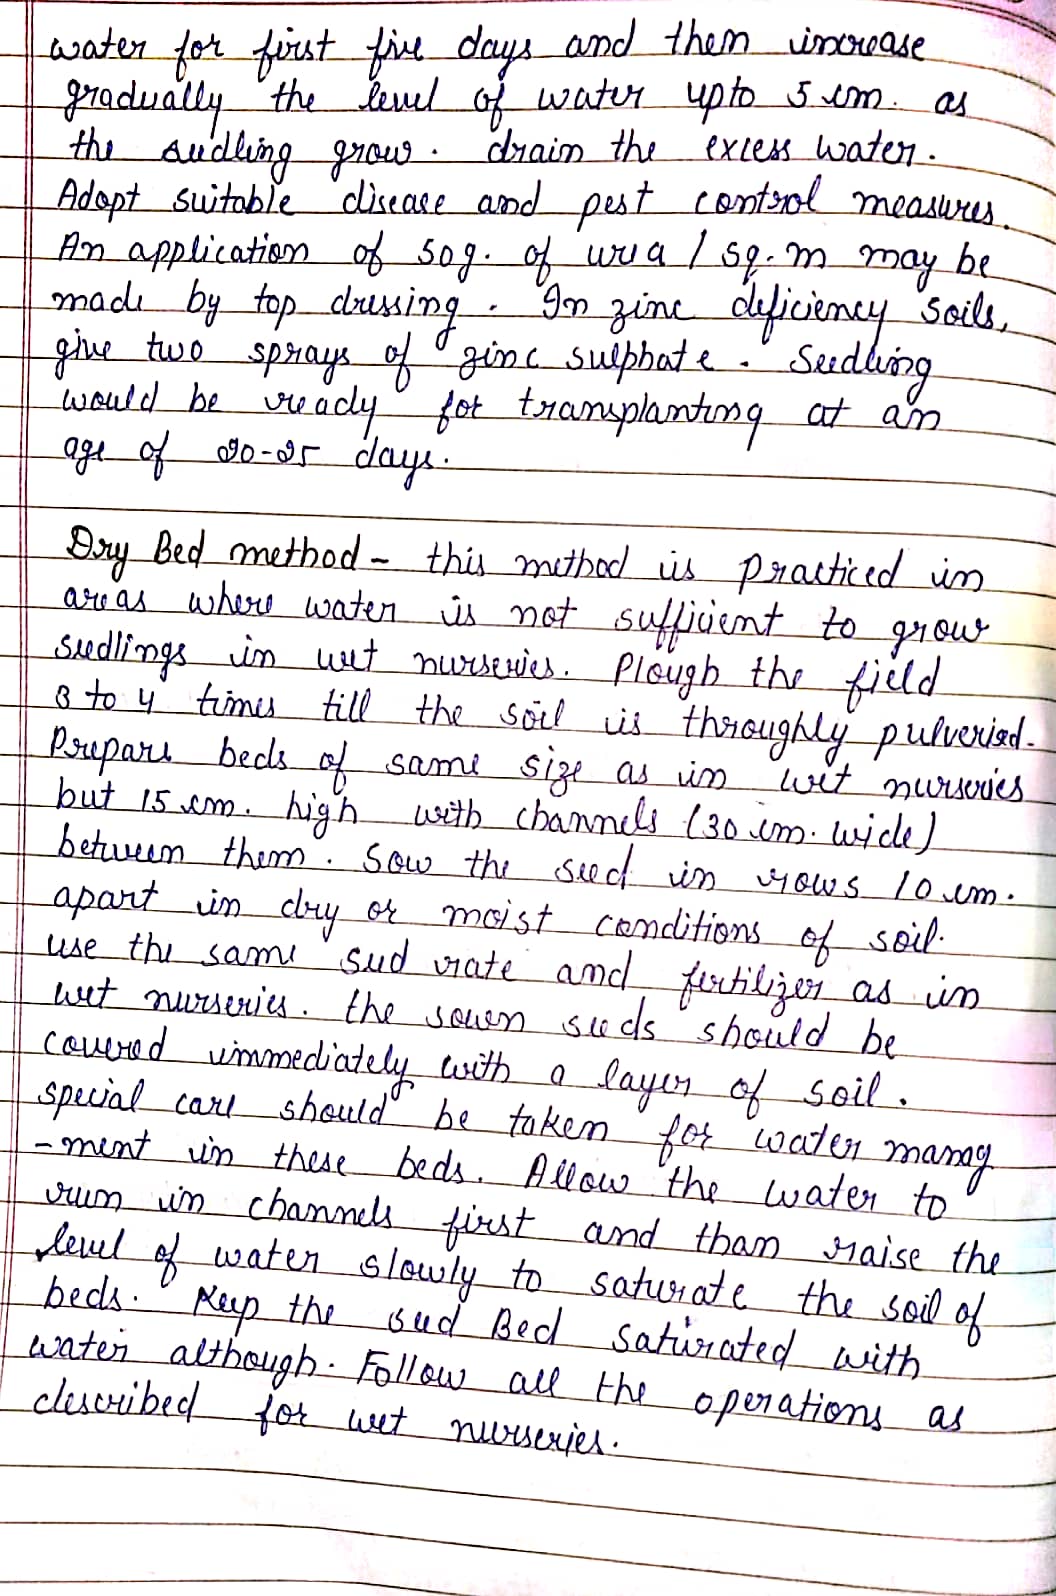 water for first five days and then increase
gradually the level of water upto 5 cm. as
the seedling grow. drain the excess water.
Adopt suitable disease and pest control measures.
An application of 50g. of urea / sq. m may be
made by top dressing. In zinc deficiency soils,
give two sprays of zinc sulphate. Seedling
would be ready for transplanting at an
age of 20-25 days.
Dry Bed method - this method is practiced in
areas where water is not sufficient to grow
seedlings in wet nurseries. Plough the field
3 to 4 times till the soil is throughly pulveried.
Prepare beds of same size as in wet nurseries
but 15 cm. high with channels (30 cm. wide)
between them. Sow the seed in rows 10 cm.
apart in dry or moist conditions of soil.
use the same seed rate and fertilizer as in
wet nurseries. the sowen seeds should be
covered immediately with a layer of soil.
special care should be taken for water manag
-ment in these beds. Allow the water to
run in channels first and than raise the
level of water slowly to saturate the soil of
beds. Keep the seed Bed saturated with
water although. Follow all the operations as
described for wet nurseries.